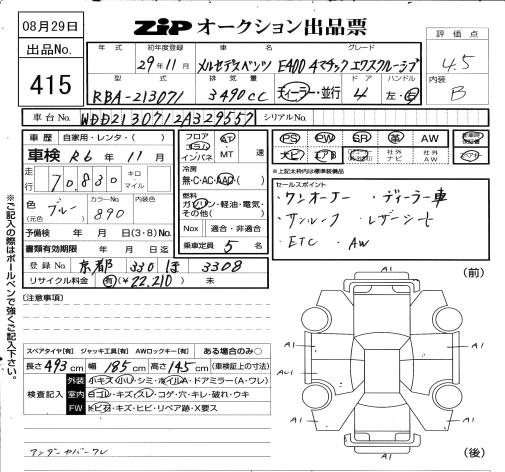 08月29日
出品No.
415
ZiP オークション出品票
評価点
4.5
内装
B
年式 初年度登録 車名 グレード
29年11月 メルセデスベンツ E400 4マチック エクスクルーシブ
型式 排気量 ドア ハンドル
RBA-213071 3490cc ディーラー・並行 4 左・右
車台No. WDD2130712A329557 シリアルNo.
車歴 自家用・レンタ・( )
車検 R6年 11月
走行 70830 キロ マイル
色 (元色) ブルー カラーNo. 890 内装色
予備検 年 月 日(3・8)No.
書類有効期限 年 月 日迄
登録No. 京都 330 ほ 3308
リサイクル料金 有(¥22,210) 未
フロア コラム インパネ AT MT 速
冷房 無・C・AC・AAC( )
燃料 ガソリン・軽油・電気・その他( )
Nox 適合・非適合
乗車定員 5 名
PS PW SR 革 AW
ナビ エアB 社外 ナビ 社外 AW
※上記太枠内は標準装備品
セールスポイント
・ワンオーナー ・ディーラー車
・サンルーフ ・レザーシート
・ETC ・AW
(注意事項)
スペアタイヤ[有] ジャッキ工具[有] AWロックキー[有] ある場合のみ○
長さ493cm 幅185cm 高さ145cm (車検証上の寸法)
検査記入
外装 小キズ・小U・シミ・ホイルA・ドアミラー(A・ワレ)
室内 白コレ・キズ・スレ・コゲ・穴・キレ・破れ・ウキ
FW トビ石・キズ・ヒビ・リペア跡・X要ス
アンダーカバーワレ
※ご記入の際はボールペンで強くご記入下さい。
(前)
A1 A1
A1 A1
A1 A1
(後)